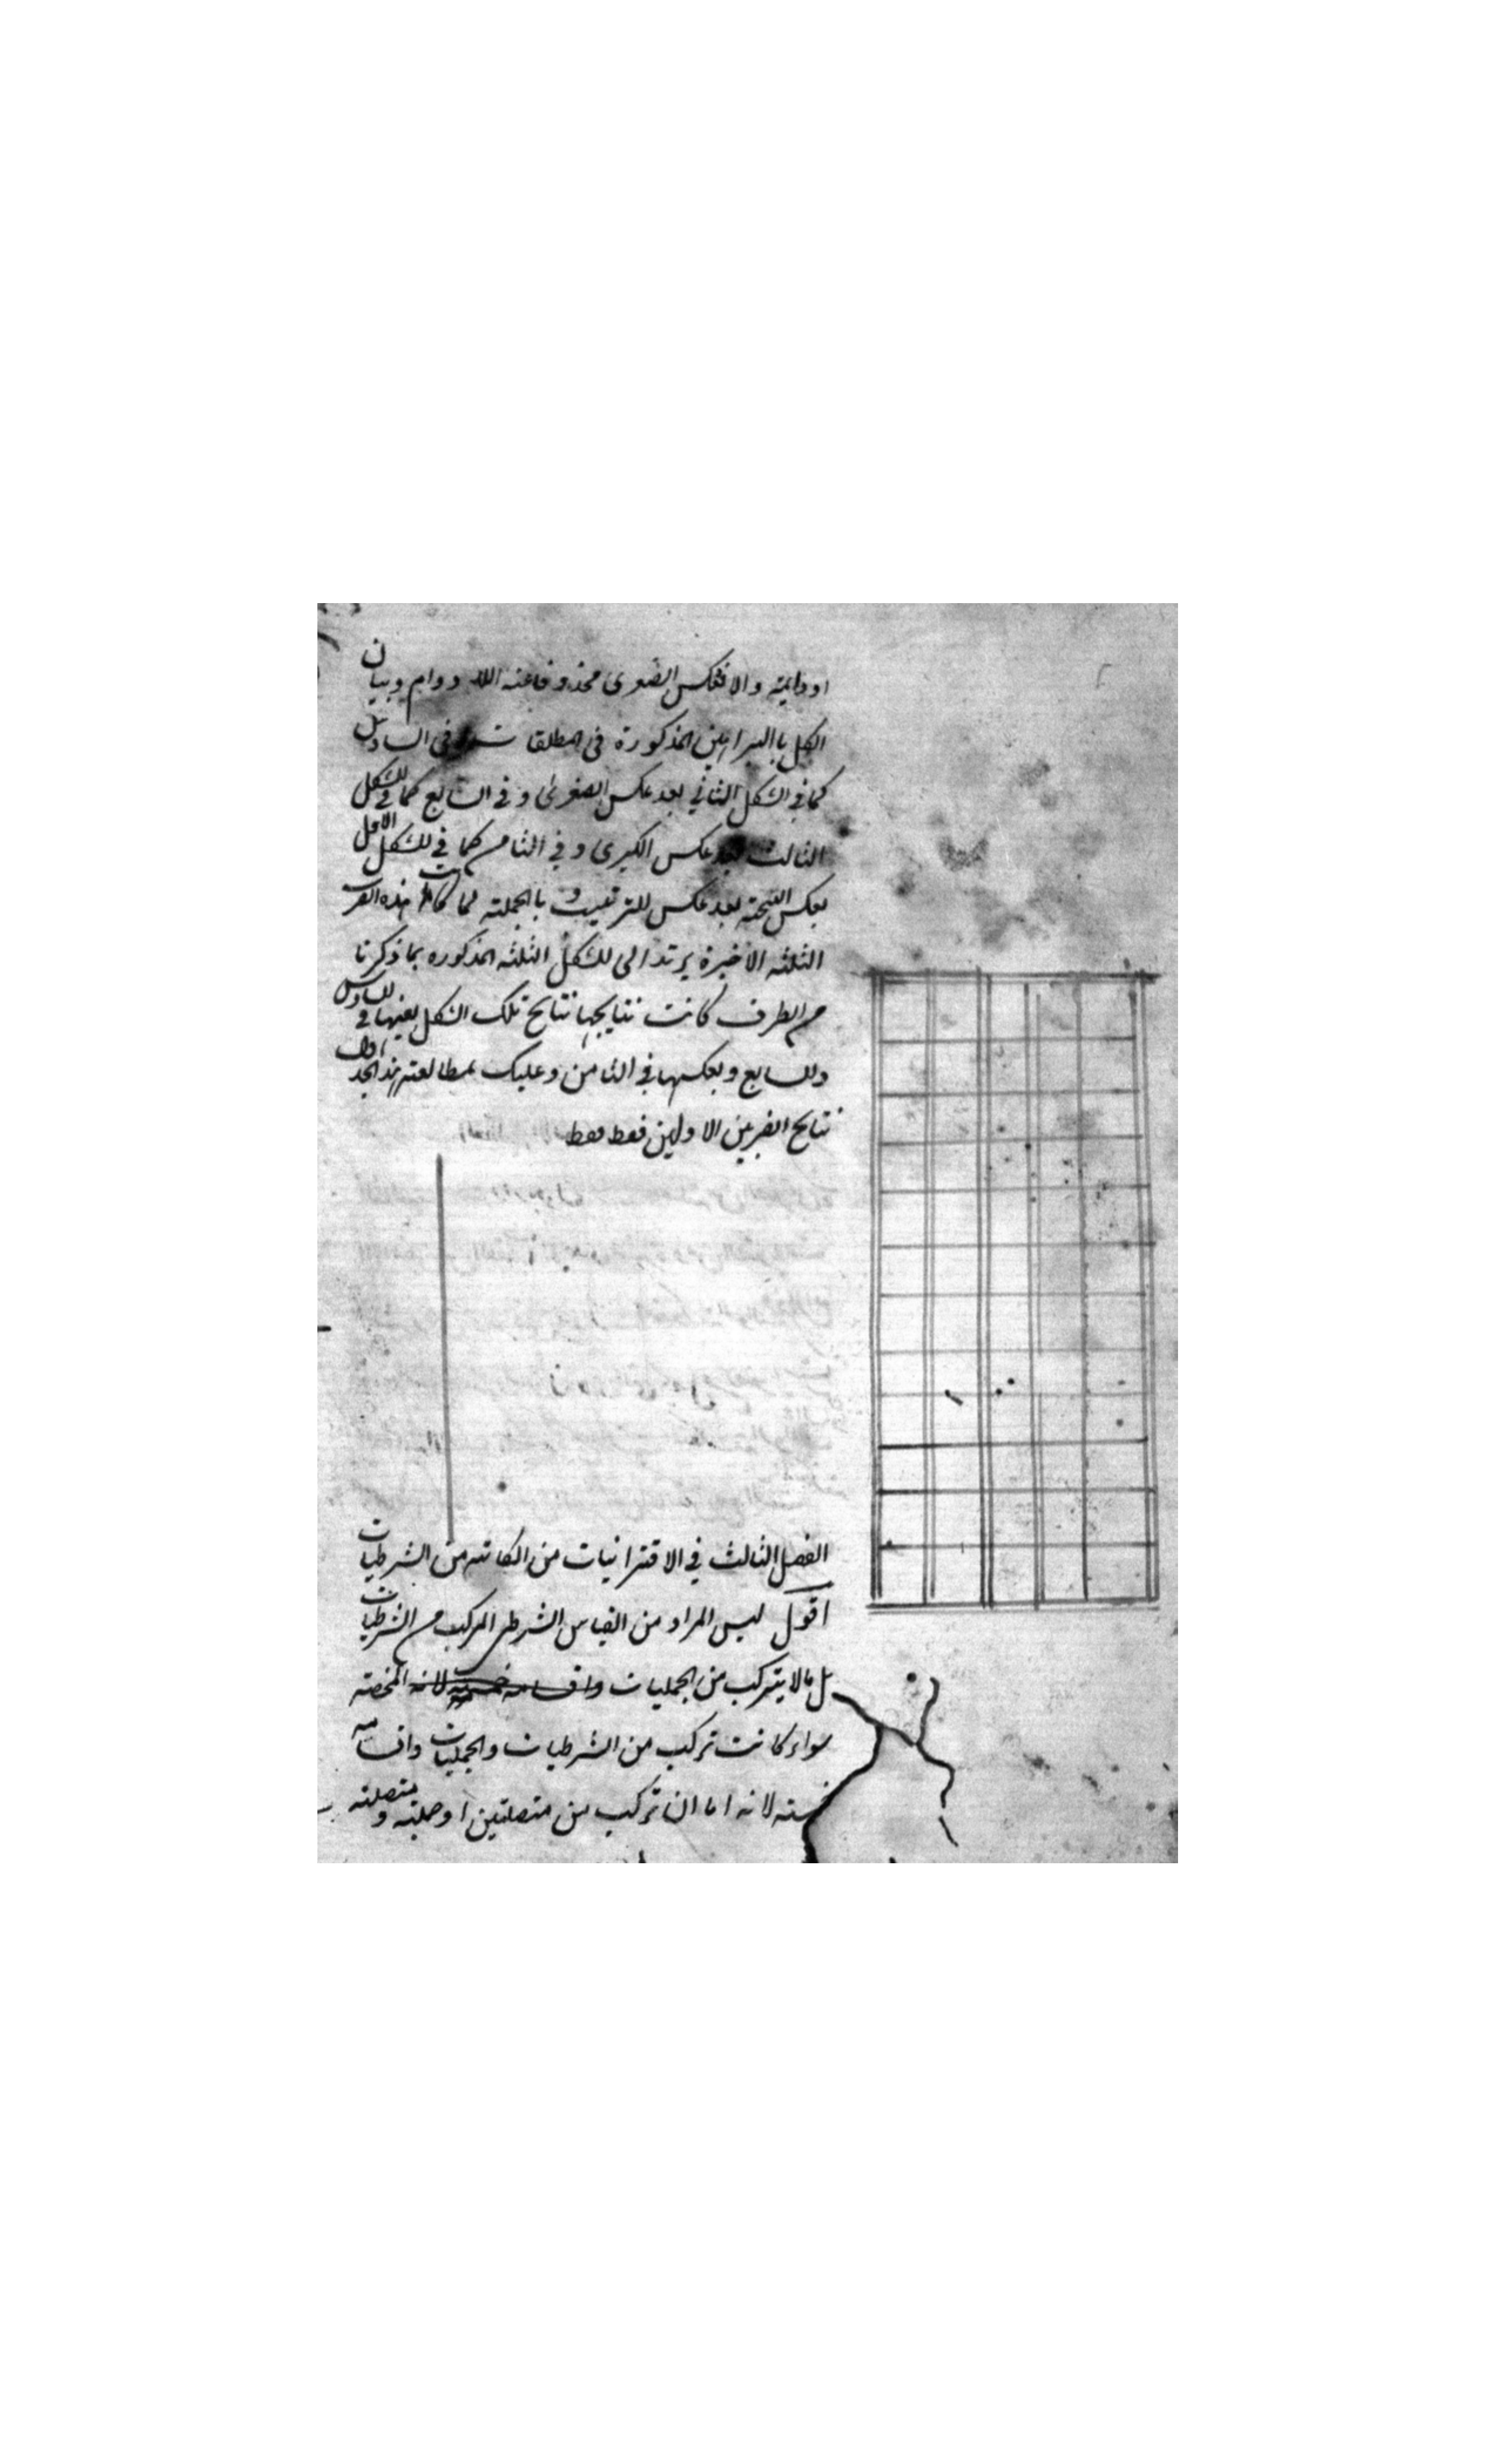 او دايمة والا فعكس الصغرى محذوفا عنه اللا دوام وبيان
الكل باالبراهين المذكورة فى المطلقات وفى السادس
كما فى الشكل الثاني بعد عكس الصغرى و فى السابع كما فى الشكل
الثالث بعد عكس الكبرى و فى الثامن كما فى الشكل الاول
بعكس النتيجة بعد عكس للترتيب و باالجملة لما كانت هذه الضرب
الثلثه الاخيرة يرتد الى الشكل الثلثه المذكوره بما ذكرنا
من الطرف كانت نتايجها نتايج تلك الشكل بعينها فى السادس
والسابع وبعكسها فى الثامن وعليك بمطالعة هذا الجداول
نتايج الضربين الاولين فقط فقط
الفصل الثالث فى الاقترانيات من الكائنه من الشرطيات
اقول ليس المراد من القياس الشرطى المركب من الشرطيات
بل ما لا يتركب من الحمليات لانه المحضة
سواء كانت تركب من الشرطيات والحمليات واقسامه
خمسته لانه اما ان تركب من متصلتين او حملية و متصلته